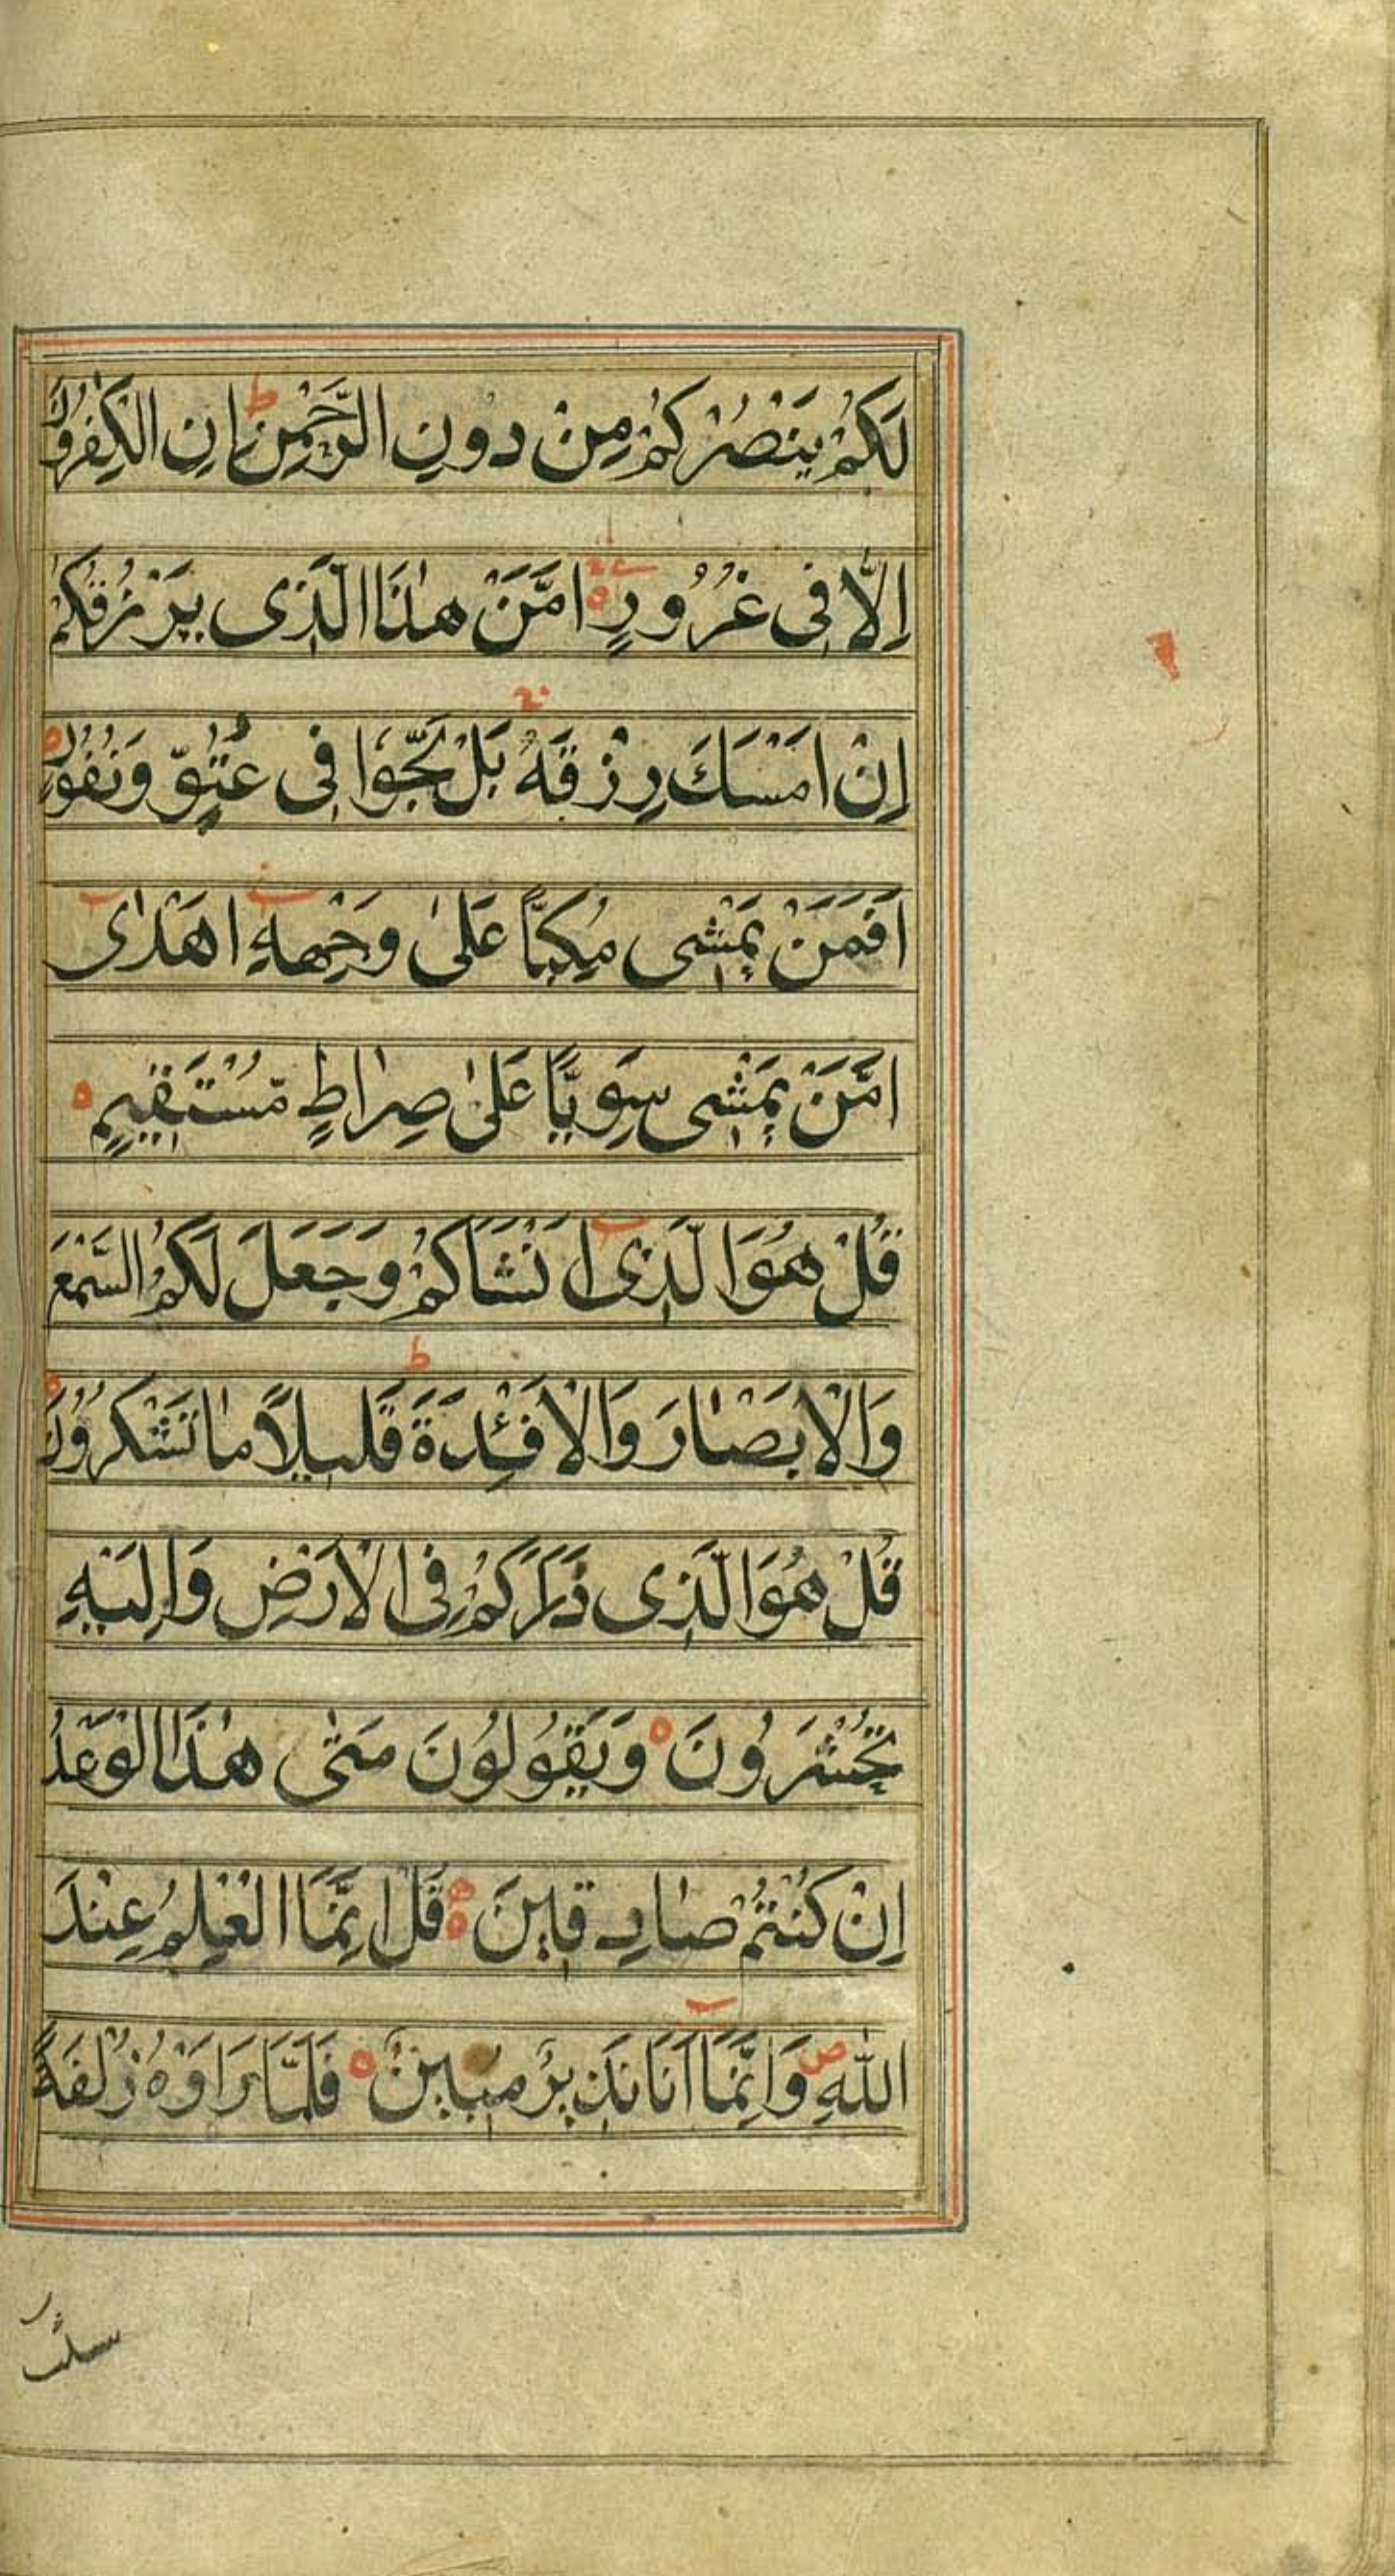 لَكُمْ يَنْصُرُكُمْ مِنْ دُونِ الرَّحْمٰنِ ط اِنِ الْكٰفِرُوْنَ
اِلَّا فِى غُرُوْرٍ اَمَّنْ هٰذَا الَّذِى يَرْزُقُكُمْ
اِنْ اَمْسَكَ رِزْقَهُ بَلْ لَجُّوْا فِى عُتُوٍّ وَنُفُوْرٍ
اَفَمَنْ يَمْشِى مُكِبًّا عَلٰى وَجْهِهِ اَهْدٰى
اَمَّنْ يَمْشِى سَوِيًّا عَلٰى صِرَاطٍ مُّسْتَقِيْمٍ
قُلْ هُوَ الَّذِى اَنْشَاَكُمْ وَجَعَلَ لَكُمُ السَّمْعَ
وَالْاَبْصَارَ وَالْاَفْئِدَةَ ط قَلِيْلًا مَا تَشْكُرُوْنَ
قُلْ هُوَ الَّذِى ذَرَاَكُمْ فِى الْاَرْضِ وَاِلَيْهِ
تُحْشَرُوْنَ وَيَقُوْلُوْنَ مَتٰى هٰذَا الْوَعْدُ
اِنْ كُنْتُمْ صَادِقِيْنَ قُلْ اِنَّمَا الْعِلْمُ عِنْدَ
اللّٰهِ ص وَاِنَّمَا اَنَا نَذِيْرٌ مُبِيْنٌ فَلَمَّا رَاَوْهُ زُلْفَةً